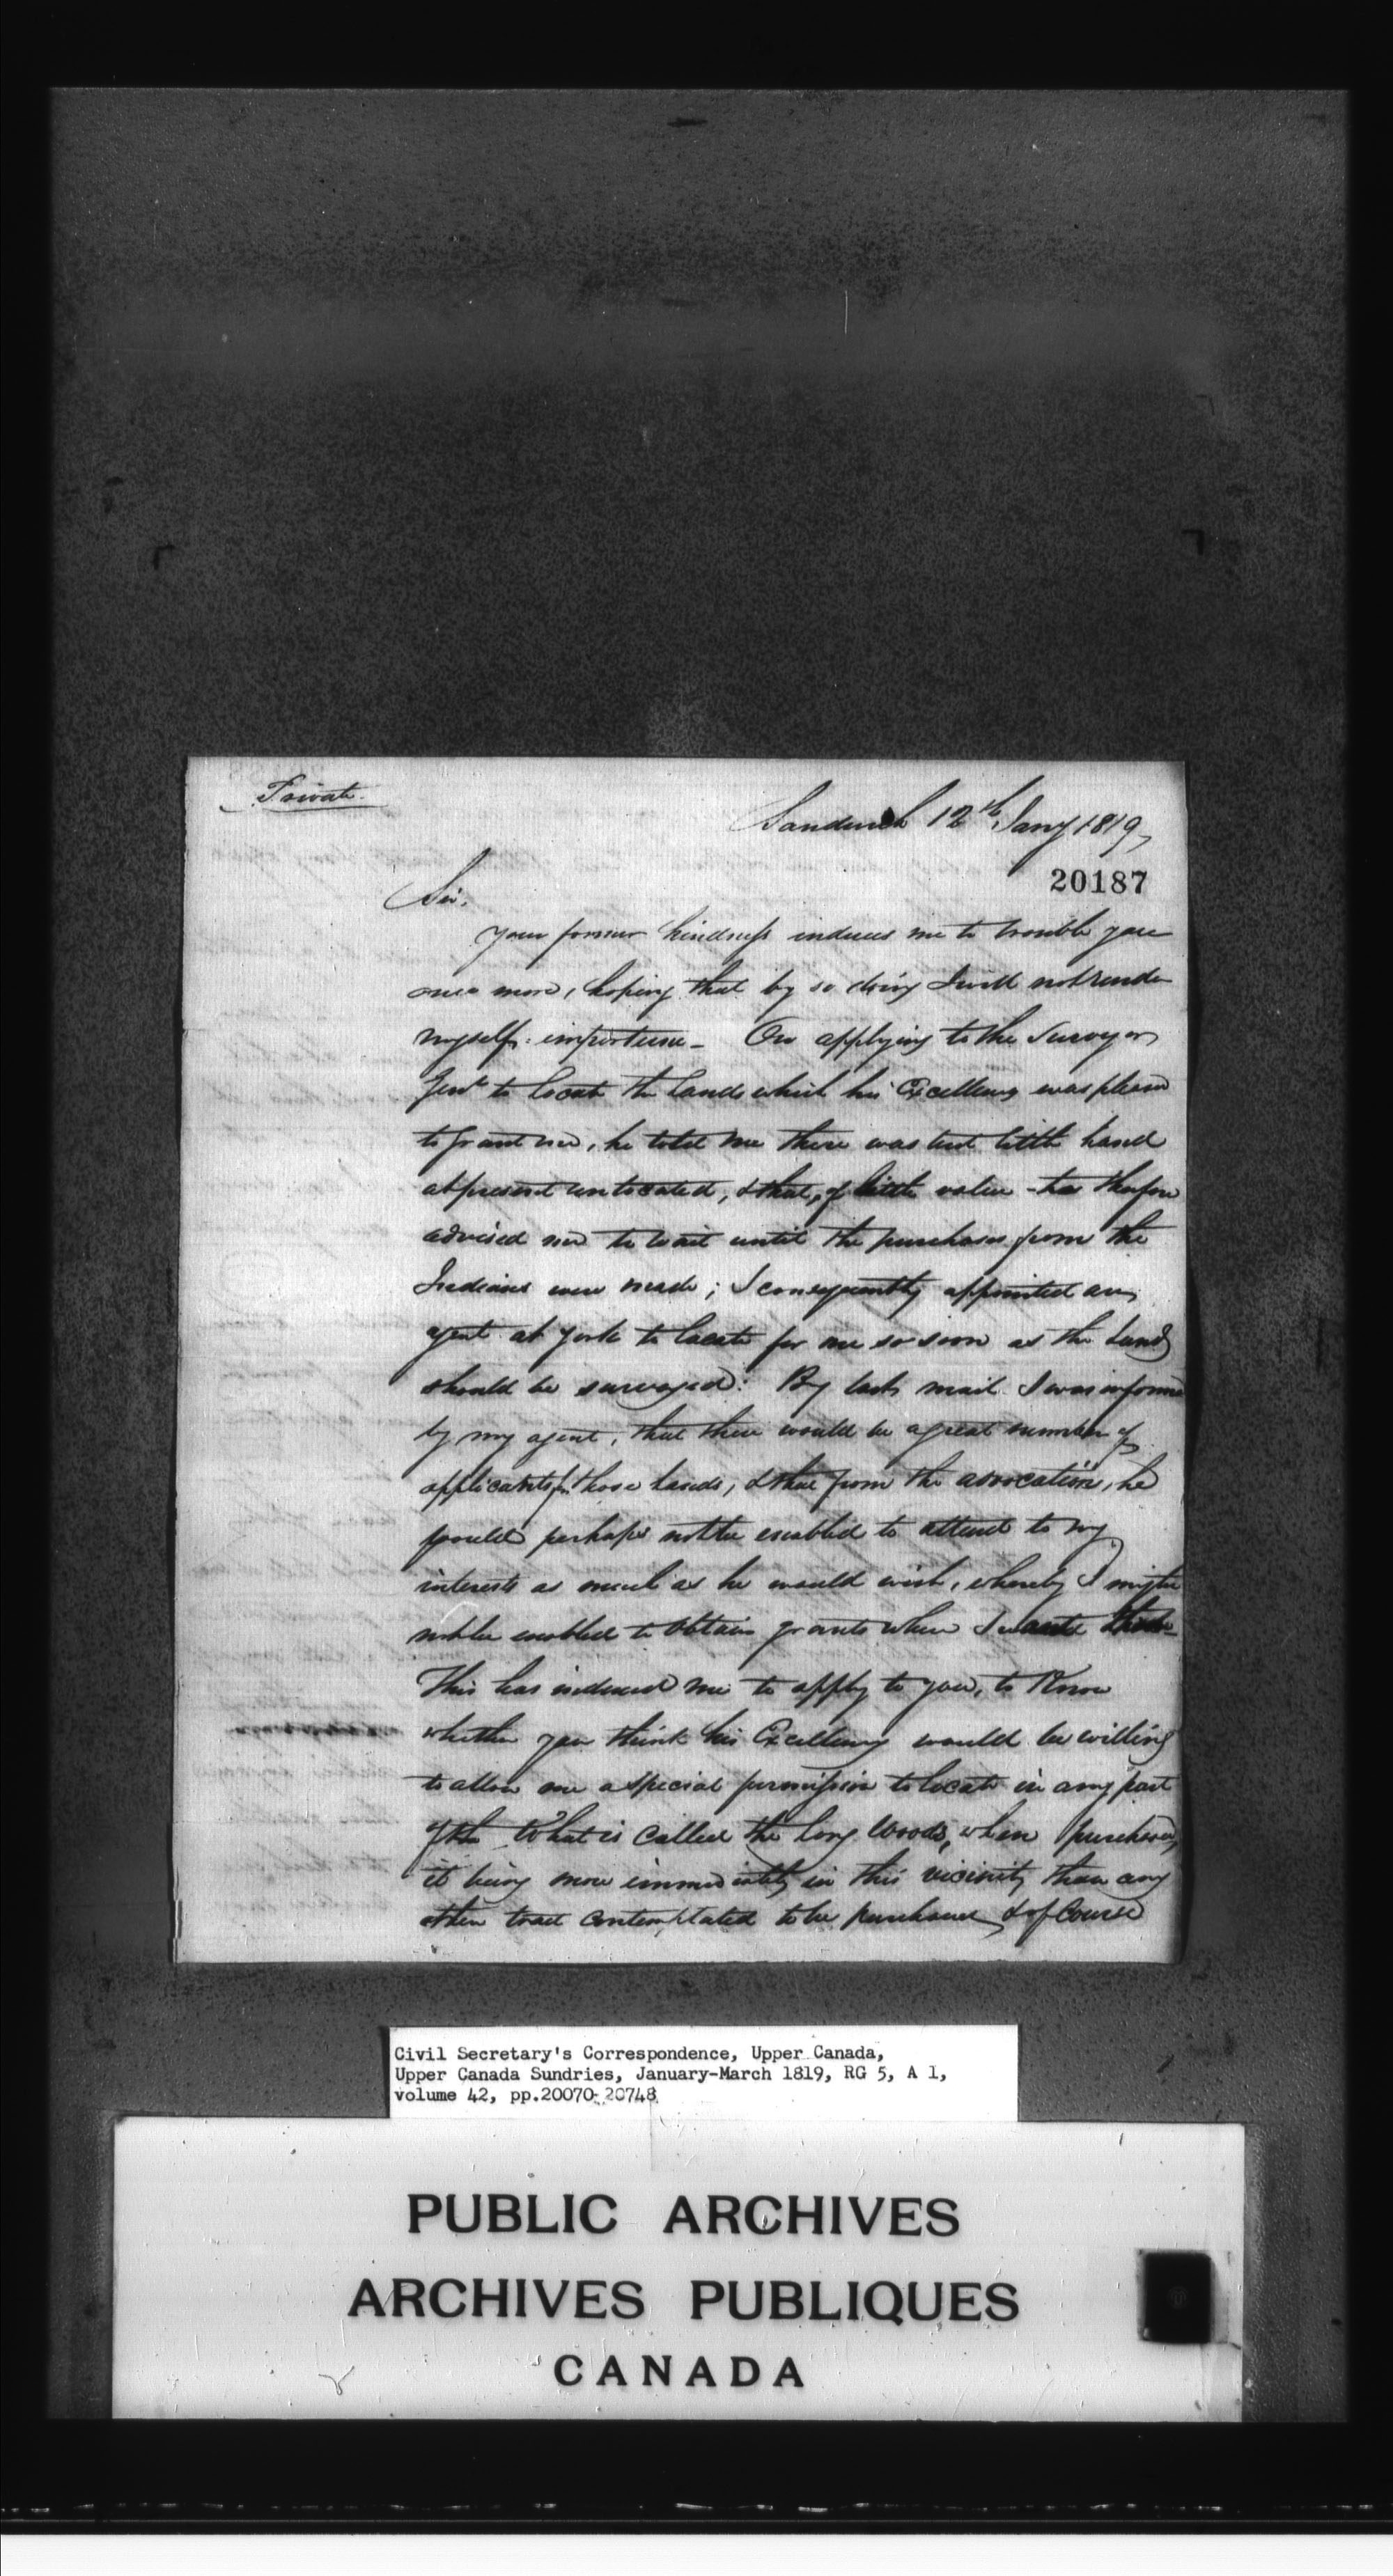 Private.
Sandwich 12th Jany 1819,
20187
Sir,
your former kindness induces me to trouble you
once more, hoping that by so doing I will not render
myself importune - On applying to the Surveyor
Genl to locate the Lands which his Excellency was pleased
to grant me, he told me there was but little land
at present unlocated, & that, of little value - he therefore
advised me to wait until the purchases from the
Indians were made; I consequently appointed an
agent at York to locate for me so soon as the Land
should be surveyed: By last mail I was informed
by my agent, that there would be a great number of
applicants for those lands, & that from the avocation, he
would perhaps not be enabled to attend to my
interests as much as he would wish, whereby I might
not be enabled to obtain grants where I
This has induced me to apply to you, to Know
whether you think his Excellency would be willing
to allow me a special permission to locate in any part
of the What is Called the long Woods, when purchased,
it being more immediately in this vicinity than any
other tract contemplated to be purchased, & of Course
Civil Secretary's Correspondence, Upper Canada,
Upper Canada Sundries, January-March 1819, RG 5, A 1,
volume 42, pp.20070-20748
PUBLIC ARCHIVES
ARCHIVES PUBLIQUES
CANADA